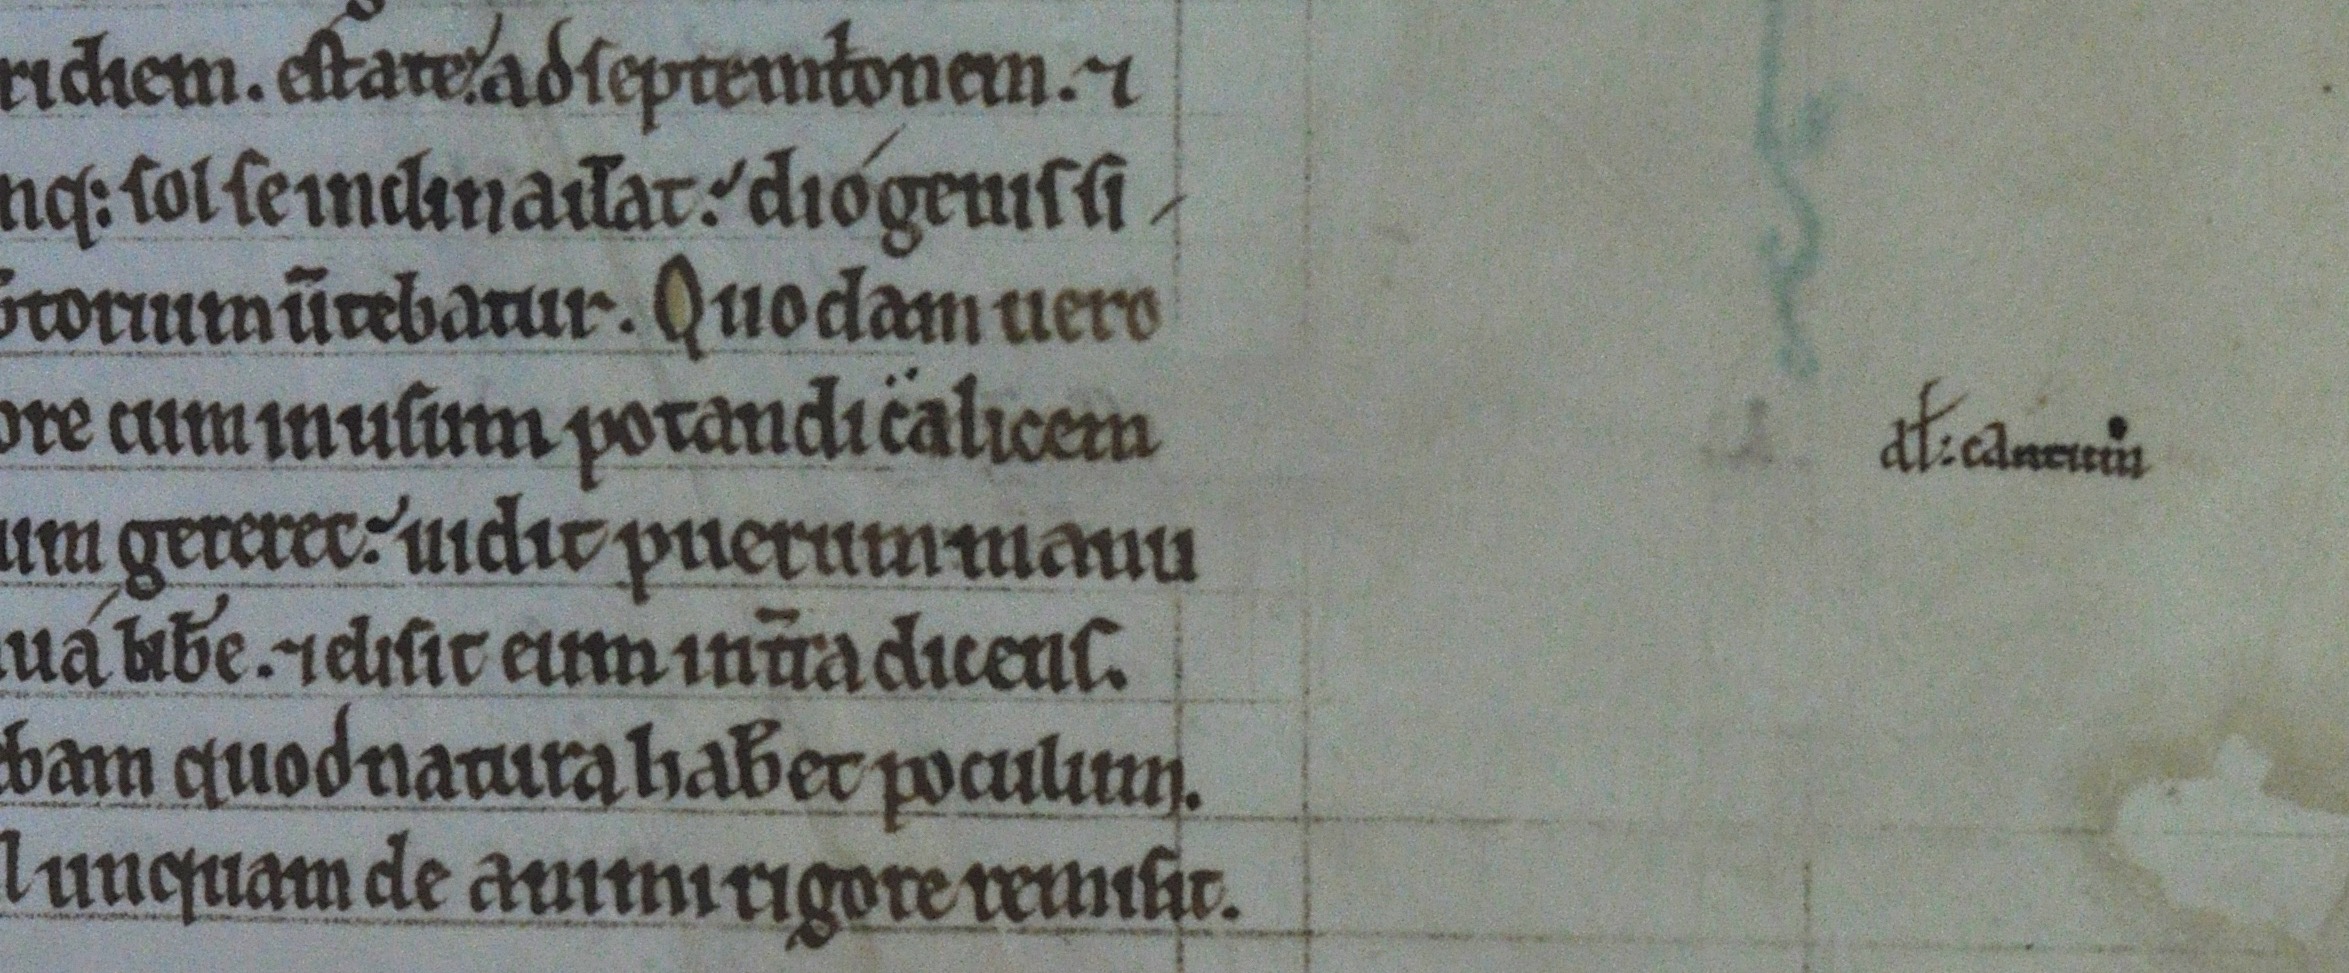 ridiem. estate ad septemt̄onem. ⁊
nq: sol se inclinau̅at: diogenis si
p̄torium ū tebatur. Quodam uero
ore cum in usum potandi calicem
um gereret: uidit puerum manu
ua bib̄e. ⁊ elisit eum in t̄ra dicens.
ebam quod natura hab̄et poculum.
l unquam de animi rigore remisit.
al̄: cantum